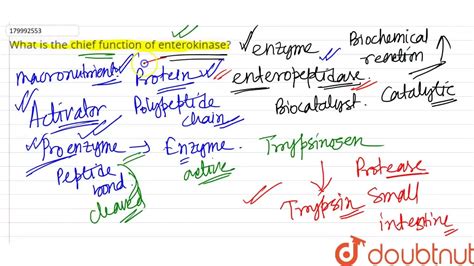 179992553
What is the chief function of enterokinase?
enzyme
Biochemical
reaction
macronutrient
Protein
enteropeptidase
Activator
Polypeptide
chain
Biocatalyst.
Catalytic
Proenzyme → Enzyme
active
Trypsinogen
Peptide
bond
cleaved
Protease
Trypsin
Small
intestine
doubtnut